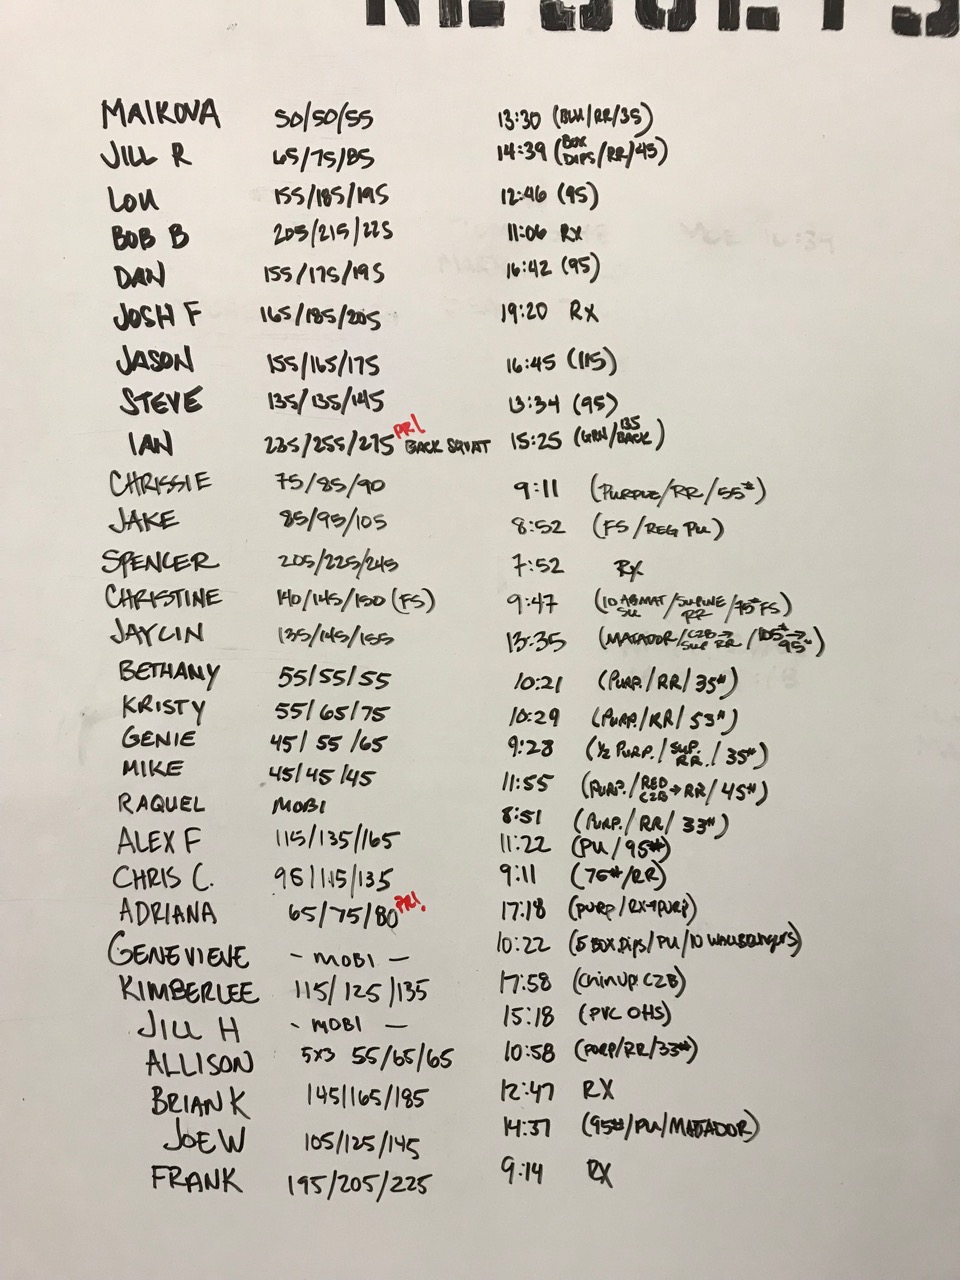 RESULTS
MALKOVA 50/50/55 13:30 (BLU/RR/35)
JILL R 65/75/85 14:39 (BOX DIPS/RR/45)
LOU 155/185/195 12:46 (95)
BOB B 205/215/225 11:06 RX
DAN 155/175/195 16:42 (95)
JOSH F 165/185/205 19:20 RX
JASON 155/165/175 16:45 (115)
STEVE 135/135/145 13:34 (95)
IAN 235/255/275 PR! BACK SQUAT 15:25 (GRN/135 BACK)
CHRISSIE 75/85/90 9:11 (PURPLE/RR/55#)
JAKE 85/95/105 8:52 (FS/REG PU)
SPENCER 205/225/245 7:52 RX
CHRISTINE 140/145/150 (FS) 9:47 (10 ABMAT SU/SUPINE RR/75# FS)
JAYLIN 135/145/155 13:35 (MATADOR/C2B→SUP RR/105#→95#)
BETHANY 55/55/55 10:21 (PURP./RR/35#)
KRISTY 55/65/75 10:29 (PURP./RR/53#)
GENIE 45/55/65 9:28 (1/2 PURP./SUP. RR./35#)
MIKE 45/45/45 11:55 (PURP./RED C2B→RR/45#)
RAQUEL MOBI 8:51 (PURP./RR/33#)
ALEX F 115/135/165 11:22 (PU/95#)
CHRIS C. 95/115/135 9:11 (75#/RR)
ADRIANA 65/75/80 PR! 17:18 (PURP/RX→PURP)
GENEVIEVE - MOBI - 10:22 (5 BOX Dips/PU/10 WALLBANGERS)
KIMBERLEE 115/125/135 17:58 (Chinup C2B)
JILL H - MOBI - 15:18 (PVC OHS)
ALLISON 5x3 55/65/65 10:58 (PURP/RR/33#)
BRIAN K 145/165/185 12:47 RX
JOE W 105/125/145 14:37 (95#/PU/MATADOR)
FRANK 195/205/225 9:14 RX